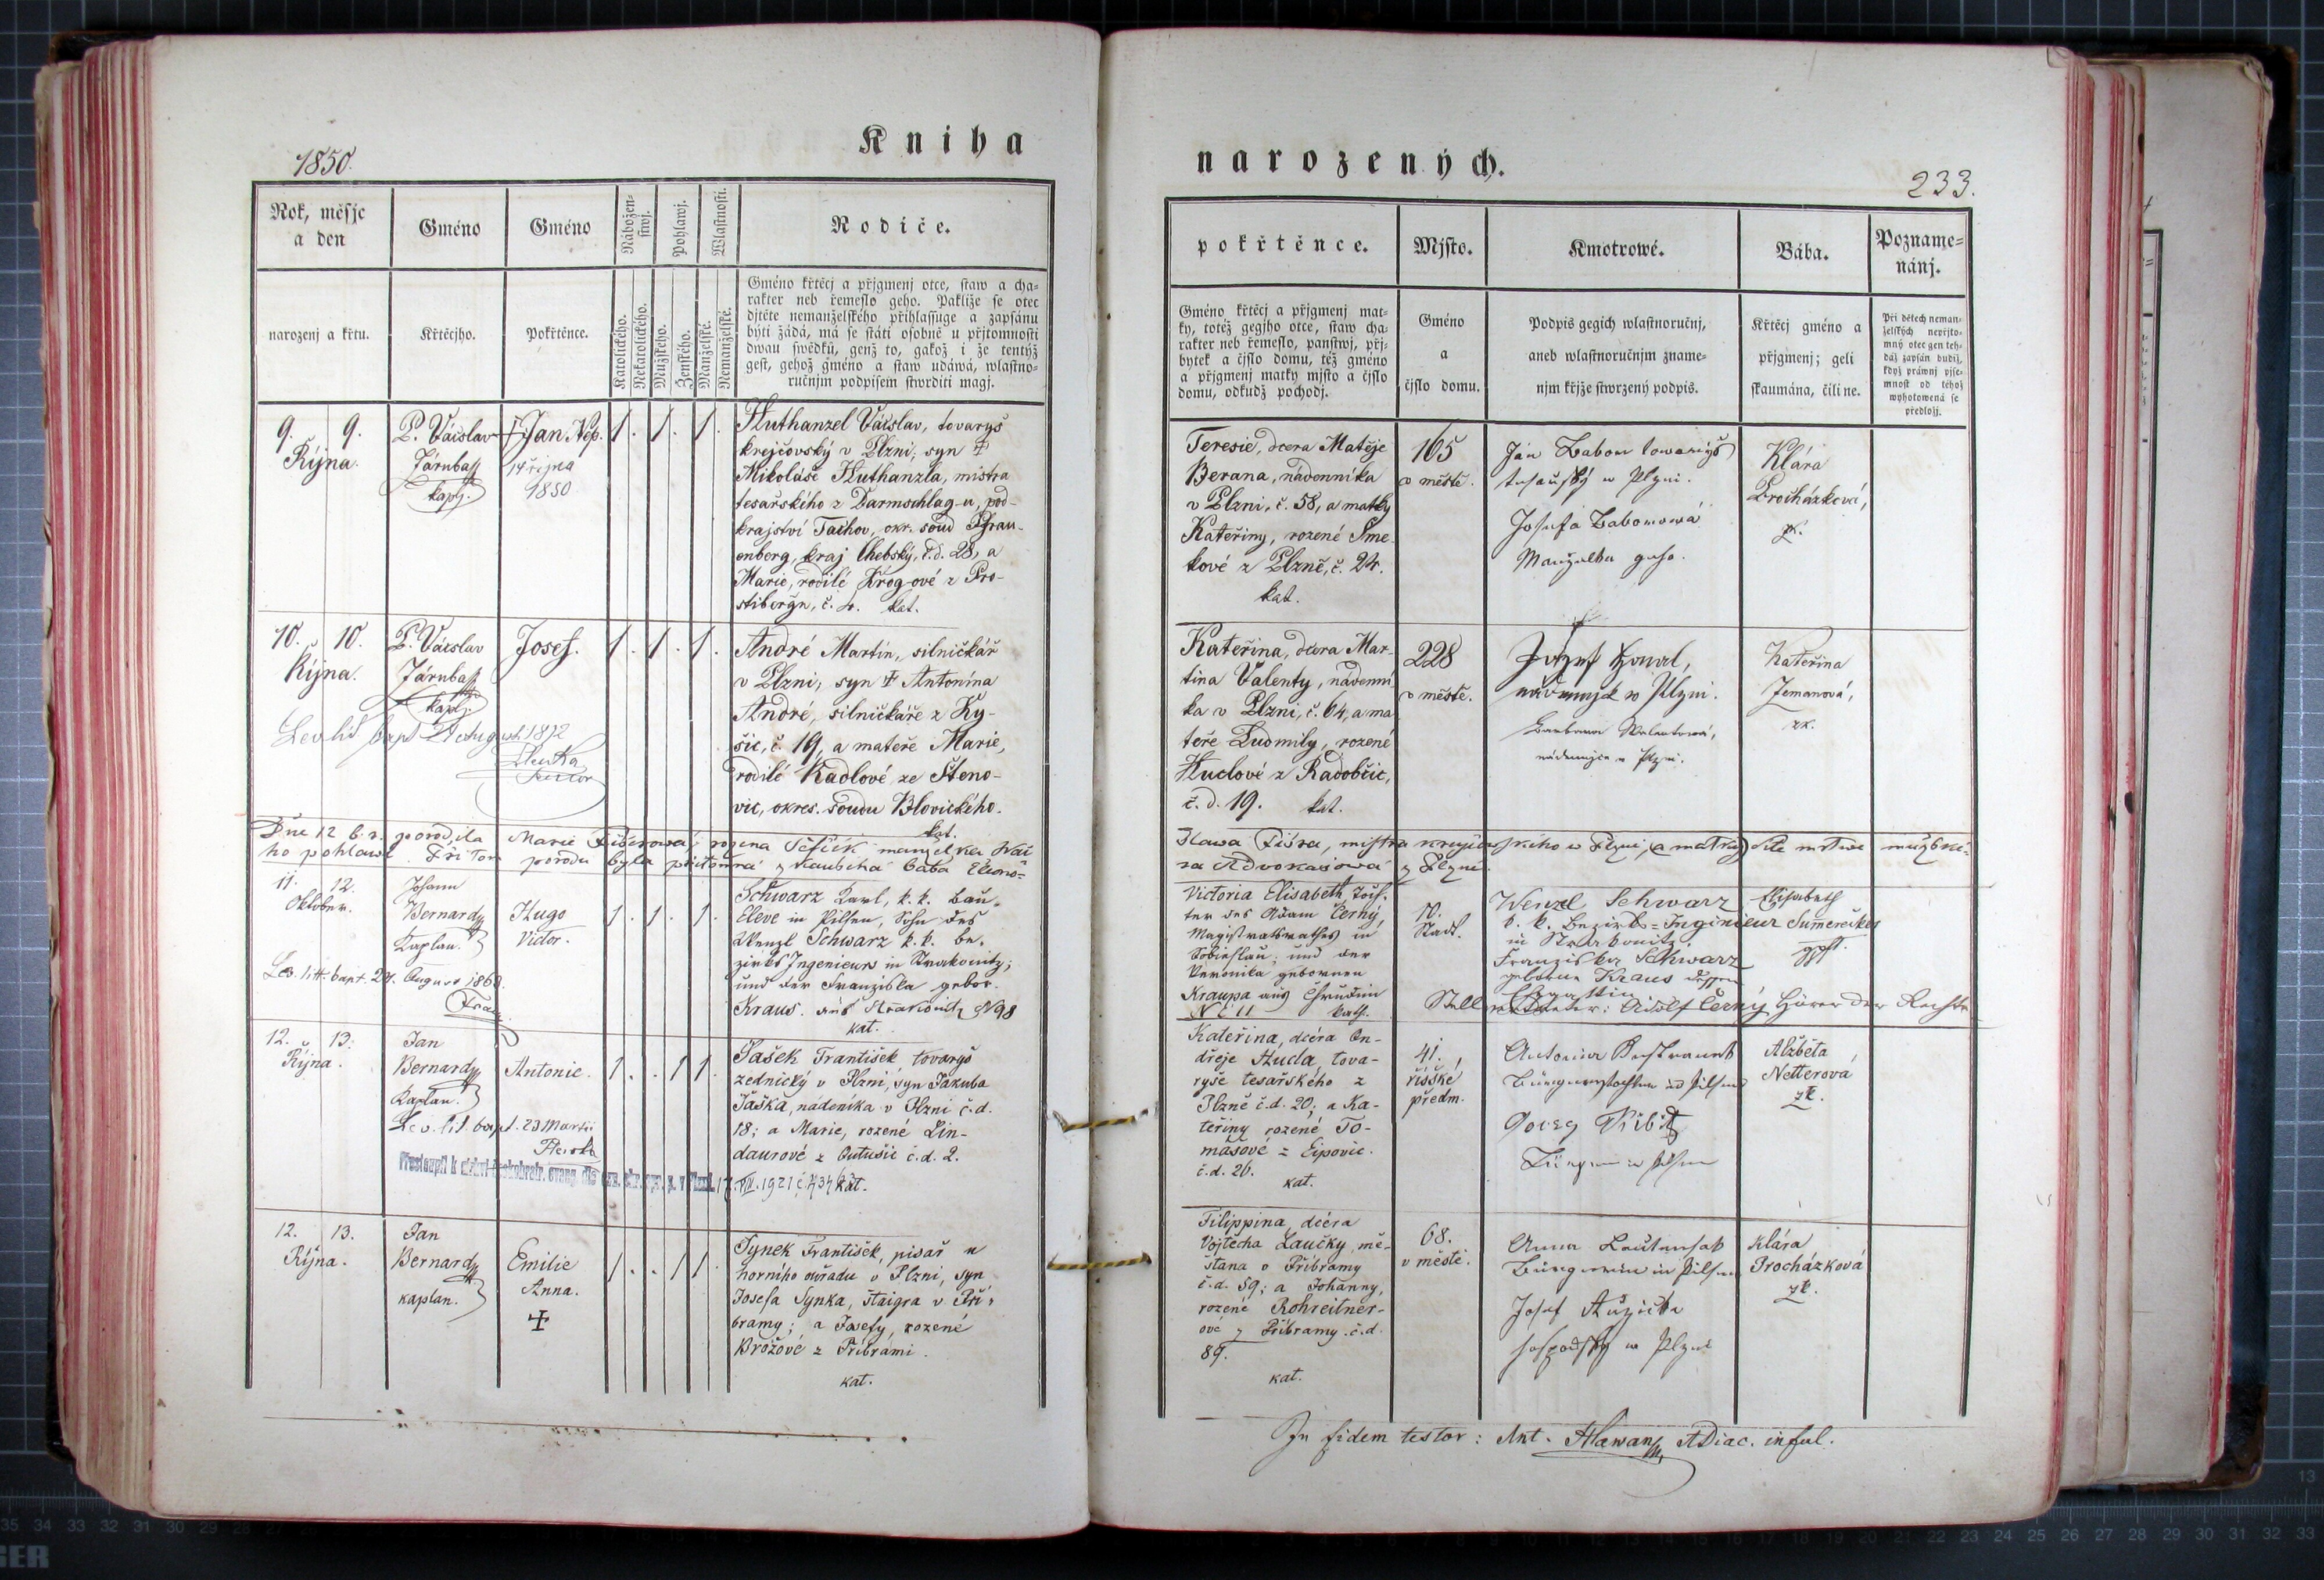 1850.
Kniha
Rok, měsjc
a den
Gméno
Gméno
Nábožen-
stwj.
Pohlawj.
Wlastnosti.
Rodiče.
narozenj a křtu.
Křtěcjho.
Pokřtěnce.
Katolického.
Nekatolického.
Mužského.
Ženského.
Manželské.
Nemanželské.
Gméno křtěcj a přjgmenj otce, staw a cha-
rakter neb řemeslo geho. Pakliže se otec
djtěte nemanželského přihlassuge a zapsánu
býti žádá, má se státi osobně u přjtomnosti
dwau swědků, genž to, gakož i že tentýž
gest, gehož gméno a staw udáwá, wlastno-
ručnjm podpisem stwrditi magj.
9. 9.
Října.
P. Václav
Járnba
kapl.
† Jan Nep.
14 října
1850
1. 1. 1.
Huthanzel Václav, tovaryš
krejčovský v Plzni; syn †
Mikoláše Huthanzla, mistra
tesařského z Darmschlag-u, pod-
krajství Tachov, okr. soud Pfrau-
enberg, kraj Chebský, č.d. 28, a
Marie, rodilé Krog-ové z Pro-
stiboře, č. 4. kat.
10. 10.
Října.
P. Václav
Járnba
kapl.
Josef.
1. 1. 1.
Lev. lit. bapt. August 1872
André Martin, silničkář
v Plzni; syn † Antonína
André, silničkáře z Ky-
šic, č. 19, a mateře Marie,
rodilé Kadlové ze Šteno-
vic, okres. soudu Blovického.
kat.
Dne 12 b. r. porodila Marie Fišerová, rozena manželka Vác
ho pohlawí. Při tom porodu byla přítomná zkaušená bába Eleono-
11. 12.
Oktober.
Johann
Bernard
Kaplan.
Hugo
Victor.
1. 1. 1.
Lev. litt. bapt. 24. August 1860.
Schwarz Karl, k. k. Bau-
Eleve in Pilsen, Sohn des
Wenzl Schwarz k. k. be-
zirks Ingenieurs in Strakonitz;
und der Franziska gebor.
Kraus. aus Strakonitz N 98
kat.
12. 13.
Října.
Jan
Bernard
Kaplan.
Antonie.
1. . 1 1
Lev. lit. bapt. 23 Martii
Jašek František, tovaryš
zednický v Plzni, syn Jakuba
Jaška, nádeníka v Plzni č.d.
18; a Marie, rozené Lin-
daurové z Outušic č.d. 2.
kat.
12. 13.
Října.
Jan
Bernard
kaplan.
Emilie
Anna.
†
1. . 1 1
Synek František, pisař u
horního ouřadu v Plzni, syn
Josefa Synka, štaigra v Pří-
bramy; a Josefy, rozené
Brožové z Příbrami.
kat.
narozených.
233.
pokřtěnce.
Mjsto.
Kmotrowé.
Bába.
Pozname-
nánj.
Gméno křtěcj a přjgmenj mat-
ky, totéž gegjho otce, staw cha-
rakter neb řemeslo, panstwj, přj-
bytek a čjslo domu, též gméno
a přjgmenj matky mjsto a čjslo
domu, odkudž pochodj.
Gméno
a
čjslo domu.
Podpis gegich wlastnoručnj,
aneb wlastnoručnjm zname-
njm křjže stwrzený podpis.
Křtěcj gméno a
přjgmenj; geli
skaumána, čili ne.
Při dětech neman-
želských nepřjto-
mný otec gen teh-
dáž zapsán budiž,
když práwnj pjse-
mnost od téhož
wyhotowená se
předložj.
Teresie, dcera Matěje
Berana, nádenníka
v Plzni, č. 58, a matky
Kateřiny, rozené Sme-
kové z Plzně, č. 24.
kat.
165
v městě.
Jan Babor towaryš
tesařský w Plzni.
Josefa Baborowá
Manželka geho.
Klára
Procházková,
zk.
Kateřina, dcera Mar-
tina Valenty, nádenní
ka v Plzni, č. 64, a ma
teře Ludmily, rozené
Huclové z Radobčic,
č. d. 19. kat.
228
v městě.
Jozef
nádennjk w Plzni.
Barbora Walentowá,
nádennjce w Plzni.
Kateřina
Zemanová,
zk.
slawa Fišra, mistra krejčowského w Plzni, (a matky) dítě mrtwé mužské-
ra Adwokasowá z Plzně.
Victoria Elisabeth, Toch-
ter des Adam Černý,
Magistratsrathes in
Sobieslau; und der
Veronika gebornen
Kraupa aus Chrudim
N C 11 kath.
10.
Stadt.
Wenzl Schwarz
k. k. Bezirks-Ingenieur
in Strakonitz.
Franziska Schwarz
geborne Kraus dessen
Gattin
Stellvertreter: Adolf Černý Hörer der Rechte
Elisabeth
Sumerecker
gpft.
Kateřina, dcéra On-
dřeje Huda, tova-
ryše tesařského z
Plzně č.d. 20; a Ka-
teřiny rozené To-
mášové z Ejpovic.
č.d. 26.
kat.
41.
říšské
předm.
Antonia
Bürgerstochter in Pilsen
Georg
Bürger in Pilsen
Alžběta
Netterová
zk.
Filippina, dcéra
Vojtěcha Laučky, mě-
šťana v Příbramy
č.d. 59; a Johanny,
rozené Rohreitner-
ové z Příbramy. č.d.
89.
kat.
68.
v městě.
Anna
Bürgerin in Pilsen
Josef Růžička
hospodský w Plzni
Klára
Procházková
zk.
In fidem testor: Ant. Hlawan ADiac. inful.